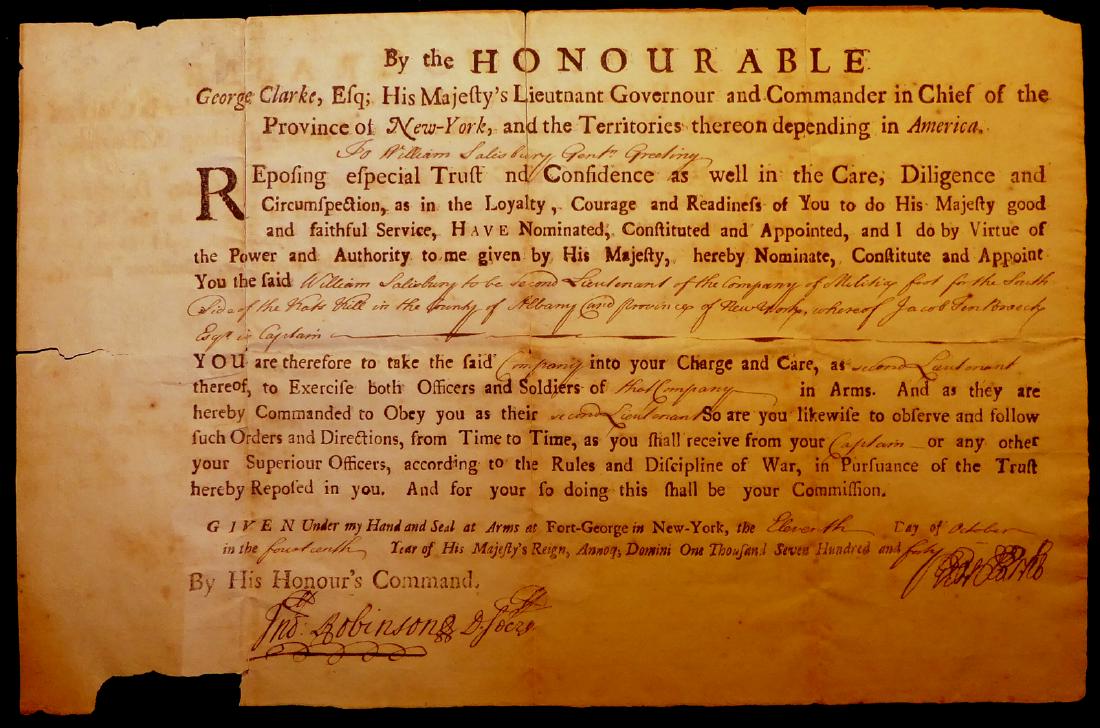 By the HONOURABLE
George Clarke, Esq; His Majeſty's Lieutnant Governour and Commander in Chief of the
Province of New-York, and the Territories thereon depending in America.
To William Salisbury Gentn Greeting
REpoſing eſpecial Truſt nd Confidence as well in the Care, Diligence and
Circumſpection, as in the Loyalty, Courage and Readineſs of You to do His Majeſty good
and faithful Service, HAVE Nominated, Conſtituted and Appointed, and I do by Virtue of
the Power and Authority to me given by His Majeſty, hereby Nominate, Conſtitute and Appoint
You the ſaid William Salisbury to be second Lieutenant of the Company of Militia foot for the South
Side of the Kats Kill in the County of Albany and province of New York, whereof Jacob Ten Broeck
Esqr is Captain
YOU are therefore to take the ſaid Company into your Charge and Care, as second Lieutenant
thereof, to Exerciſe both Officers and Soldiers of that Company in Arms. And as they are
hereby Commanded to Obey you as their second Lieutenant So are you likewiſe to obſerve and follow
ſuch Orders and Directions, from Time to Time, as you ſhall receive from your Captain or any other
your Superiour Officers, according to the Rules and Diſcipline of War, in Purſuance of the Truſt
hereby Repoſed in you. And for your ſo doing this ſhall be your Commiſſion.
GIVEN Under my Hand and Seal at Arms at Fort-George in New-York, the Eleventh Day of October
in the fourteenth Year of His Majeſty's Reign, Annoq; Domini One Thouſand Seven Hundred and forty
By His Honour's Command.
Robinson